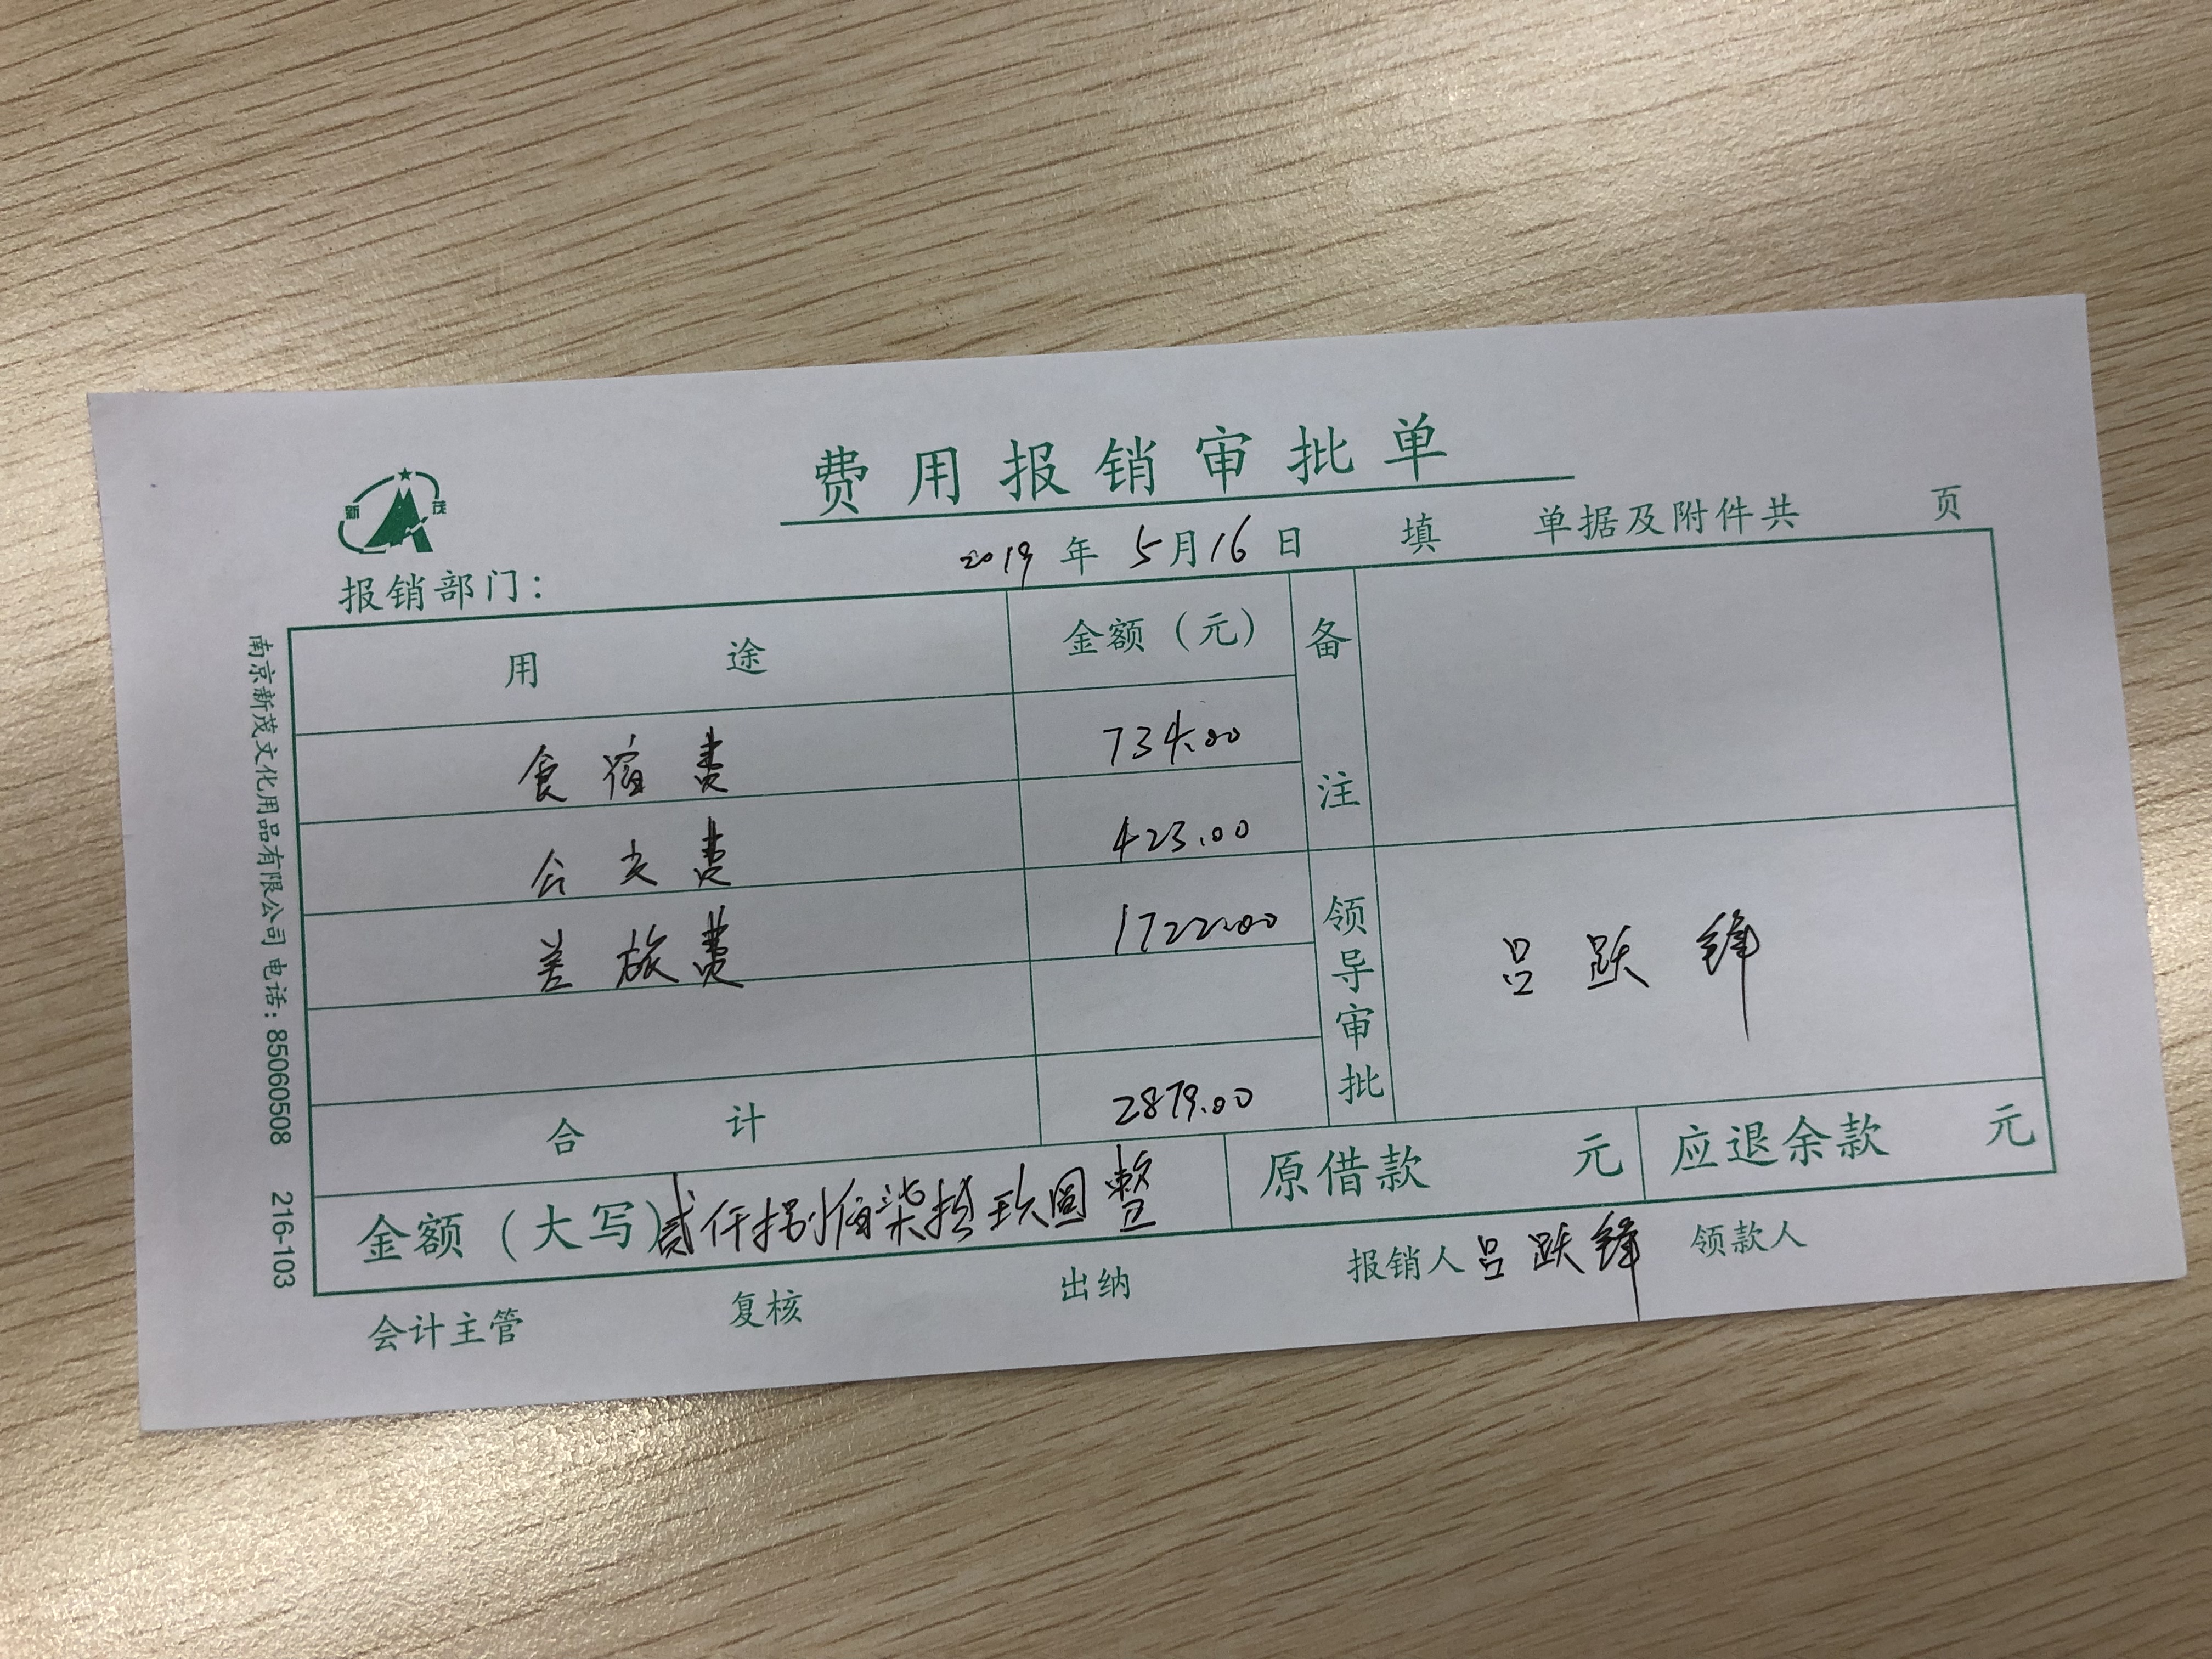 费用报销审批单
新 茂
报销部门: 2019年5月16日 填 单据及附件共 页
用途 金额(元) 备注
食宿费 734.00
公交费 423.00
差旅费 1722.00
领导审批 吕跃
合计 2879.00
金额(大写)贰仟捌佰柒拾玖圆整 原借款 元 应退余款 元
会计主管 复核 出纳 报销人 吕跃 领款人
南京新茂文化用品有限公司 电话: 85060508 216-103